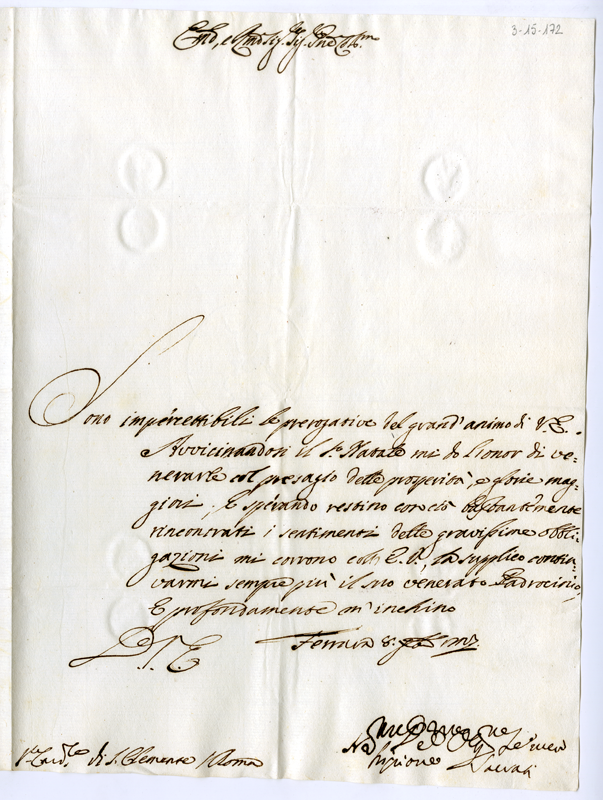 3-15-172
Sono impercettibili le prerogative del grand'animo di V.E.
Avvicinandosi il S.to Natale mi do l'onor di ve-
nerarle col presagio delle prosperità, e glorie mag-
giori; E sperando restino con ciò bastantemente
rincontrati i sentimenti delle gravissime obbli-
gazioni mi corrono coll'E.V., la supplico contin-
varmi sempre più il suo venerato Padrocinio,
E profondamente m'inchino
D.V.E. Ferrara 8.
di S. Clemente Roma
Scipione